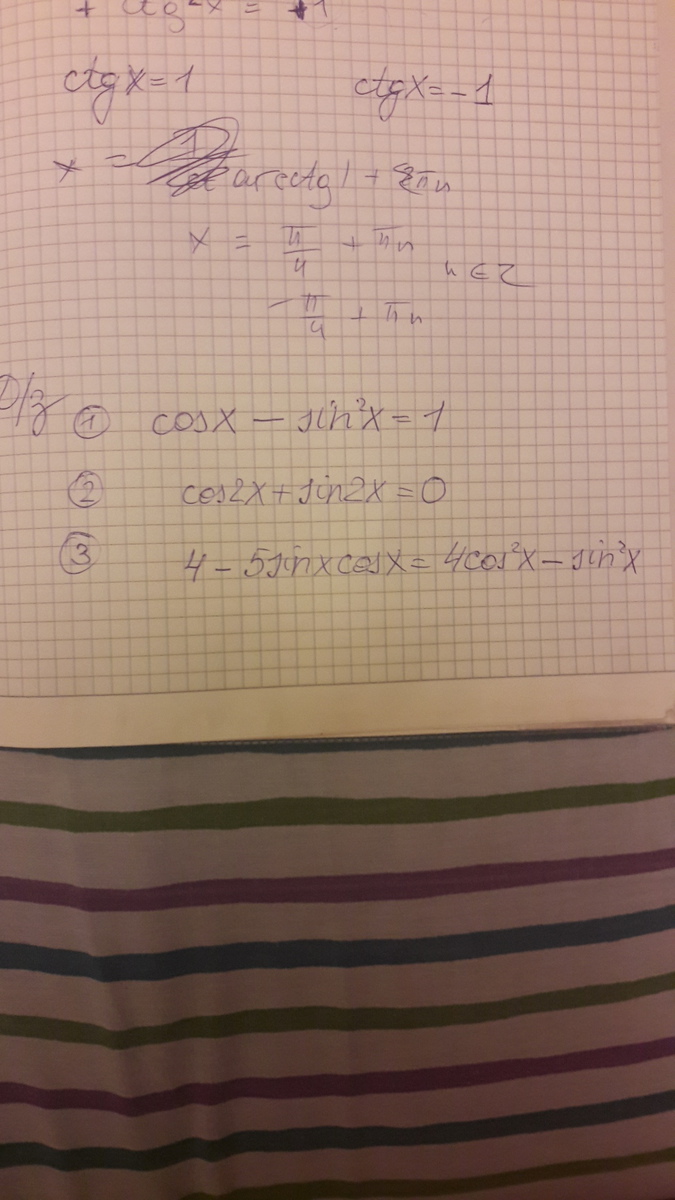 + ctg²x = +1
ctgx = 1 ctgx = -1
x = arcctg1 + πn
x = π/4 + πn n ∈ Z
-π/4 + πn
D/z ① cosx - sin²x = 1
② cos2x + sin2x = 0
③ 4 - 5sinxcosx = 4cos²x - sin²x